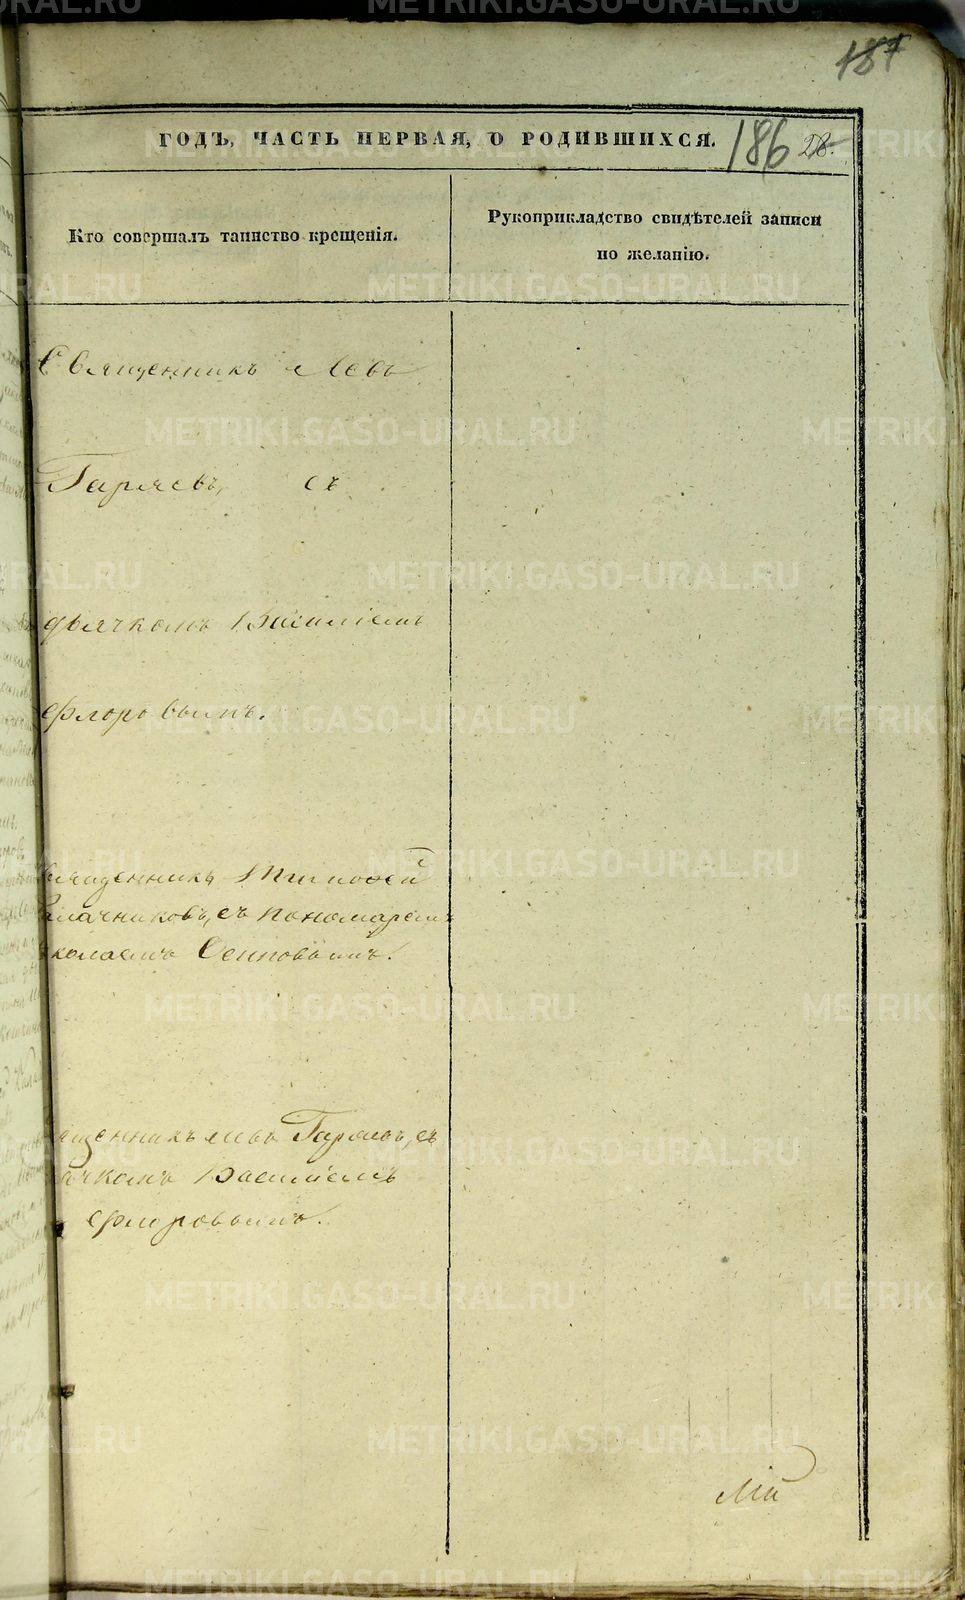 187
ГОДЪ, ЧАСТЬ ПЕРВАЯ, О РОДИВШИХСЯ.
186 28.
Кто совершалъ таинство крещенія.
Рукоприкладство свидѣтелей записи
по желанію.
Священникъ Левъ
Гаряевъ, съ
дьячкомъ Василіемъ
Флоровымъ.
священникъ Тимофей
съ пономаремъ
Осиповымъ.
Левъ Гаряевъ, съ
Василіемъ
Флоровымъ.
METRIKI.GASO-URAL.RU